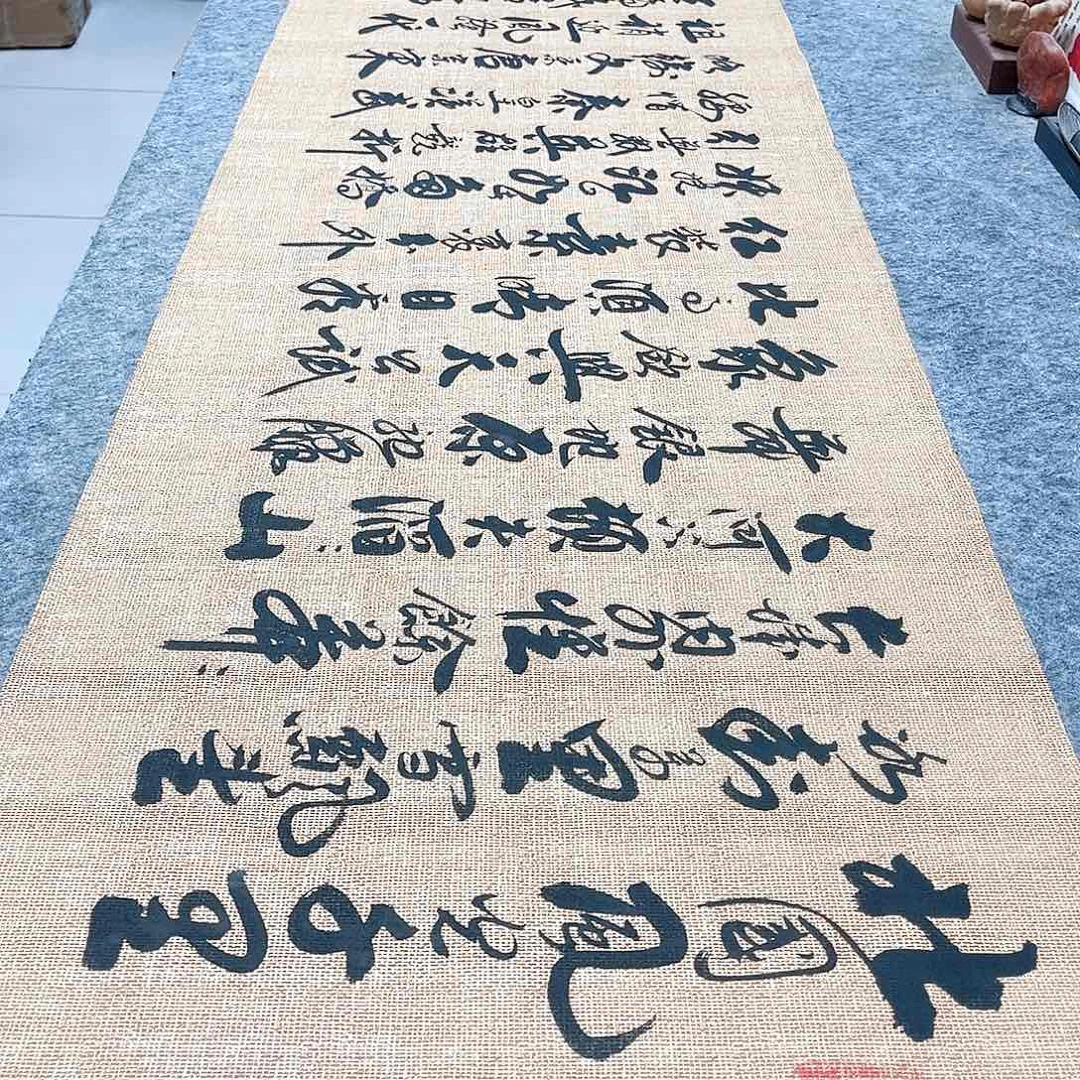 北國風光千里
冰封萬里雪飄望
長城內外惟餘莽莽
大河上下頓失滔滔山
舞銀蛇原馳蠟
象欲與天公試
比高須晴日看
紅裝素裹分外
妖嬈江山如此多嬌
引無數英雄競折
腰惜秦皇漢武
略輸文采唐宗宋
祖稍遜風騷一代